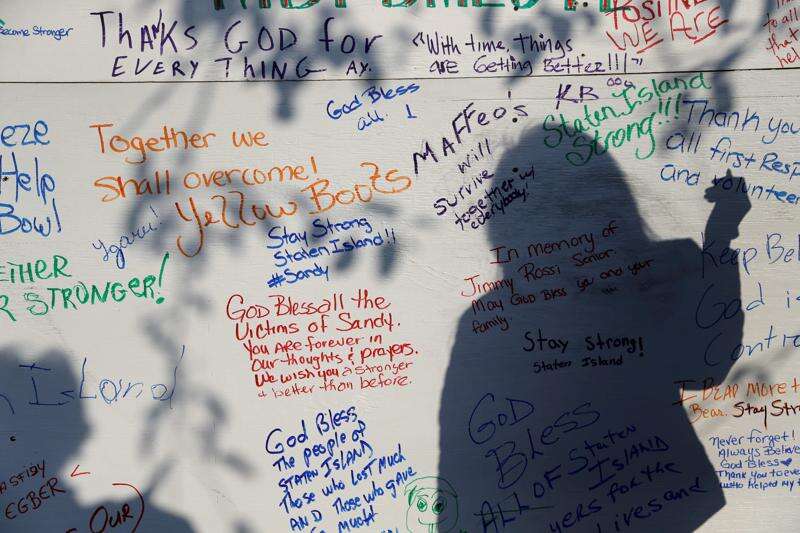 THANKS GOD for
EVERY THING AY.
"With time, things
are Getting Better!!!"
WE ARE
Become Stronger
God Bless
all.
MAFFeo's
will
survive
together w/
everybody!
KB
Staten Island
Strong!!!
Thank you
all first Resp
and volunteer
eze
Help
Bowl
Together we
shall overcome!
Yellow Boots
Stay Strong
Staten Island!!
#Sandy
EITHER
R STRONGER!
In memory of
Jimmy Rossi Senior.
May GOD Bless ya and your
family.
Stay Strong!
Staten Island
Keep Bel
God i
Contro
GOD Bless all the
Victims of Sandy.
You are forever in
Our thoughts & prayers.
We wish you a stronger
& better than before.
n Island
I BEAR more t
Bear. Stay Str
never forget!
Always Believe
God Bless
Thank you eve
who helped my
God Bless
The people of
STATEN ISLAND
Those who lost much
AND Those who gave
so much
GOD
BLESS
ALL OF STATEN
ISLAND
yers for the
lives and
EGBER
OUR